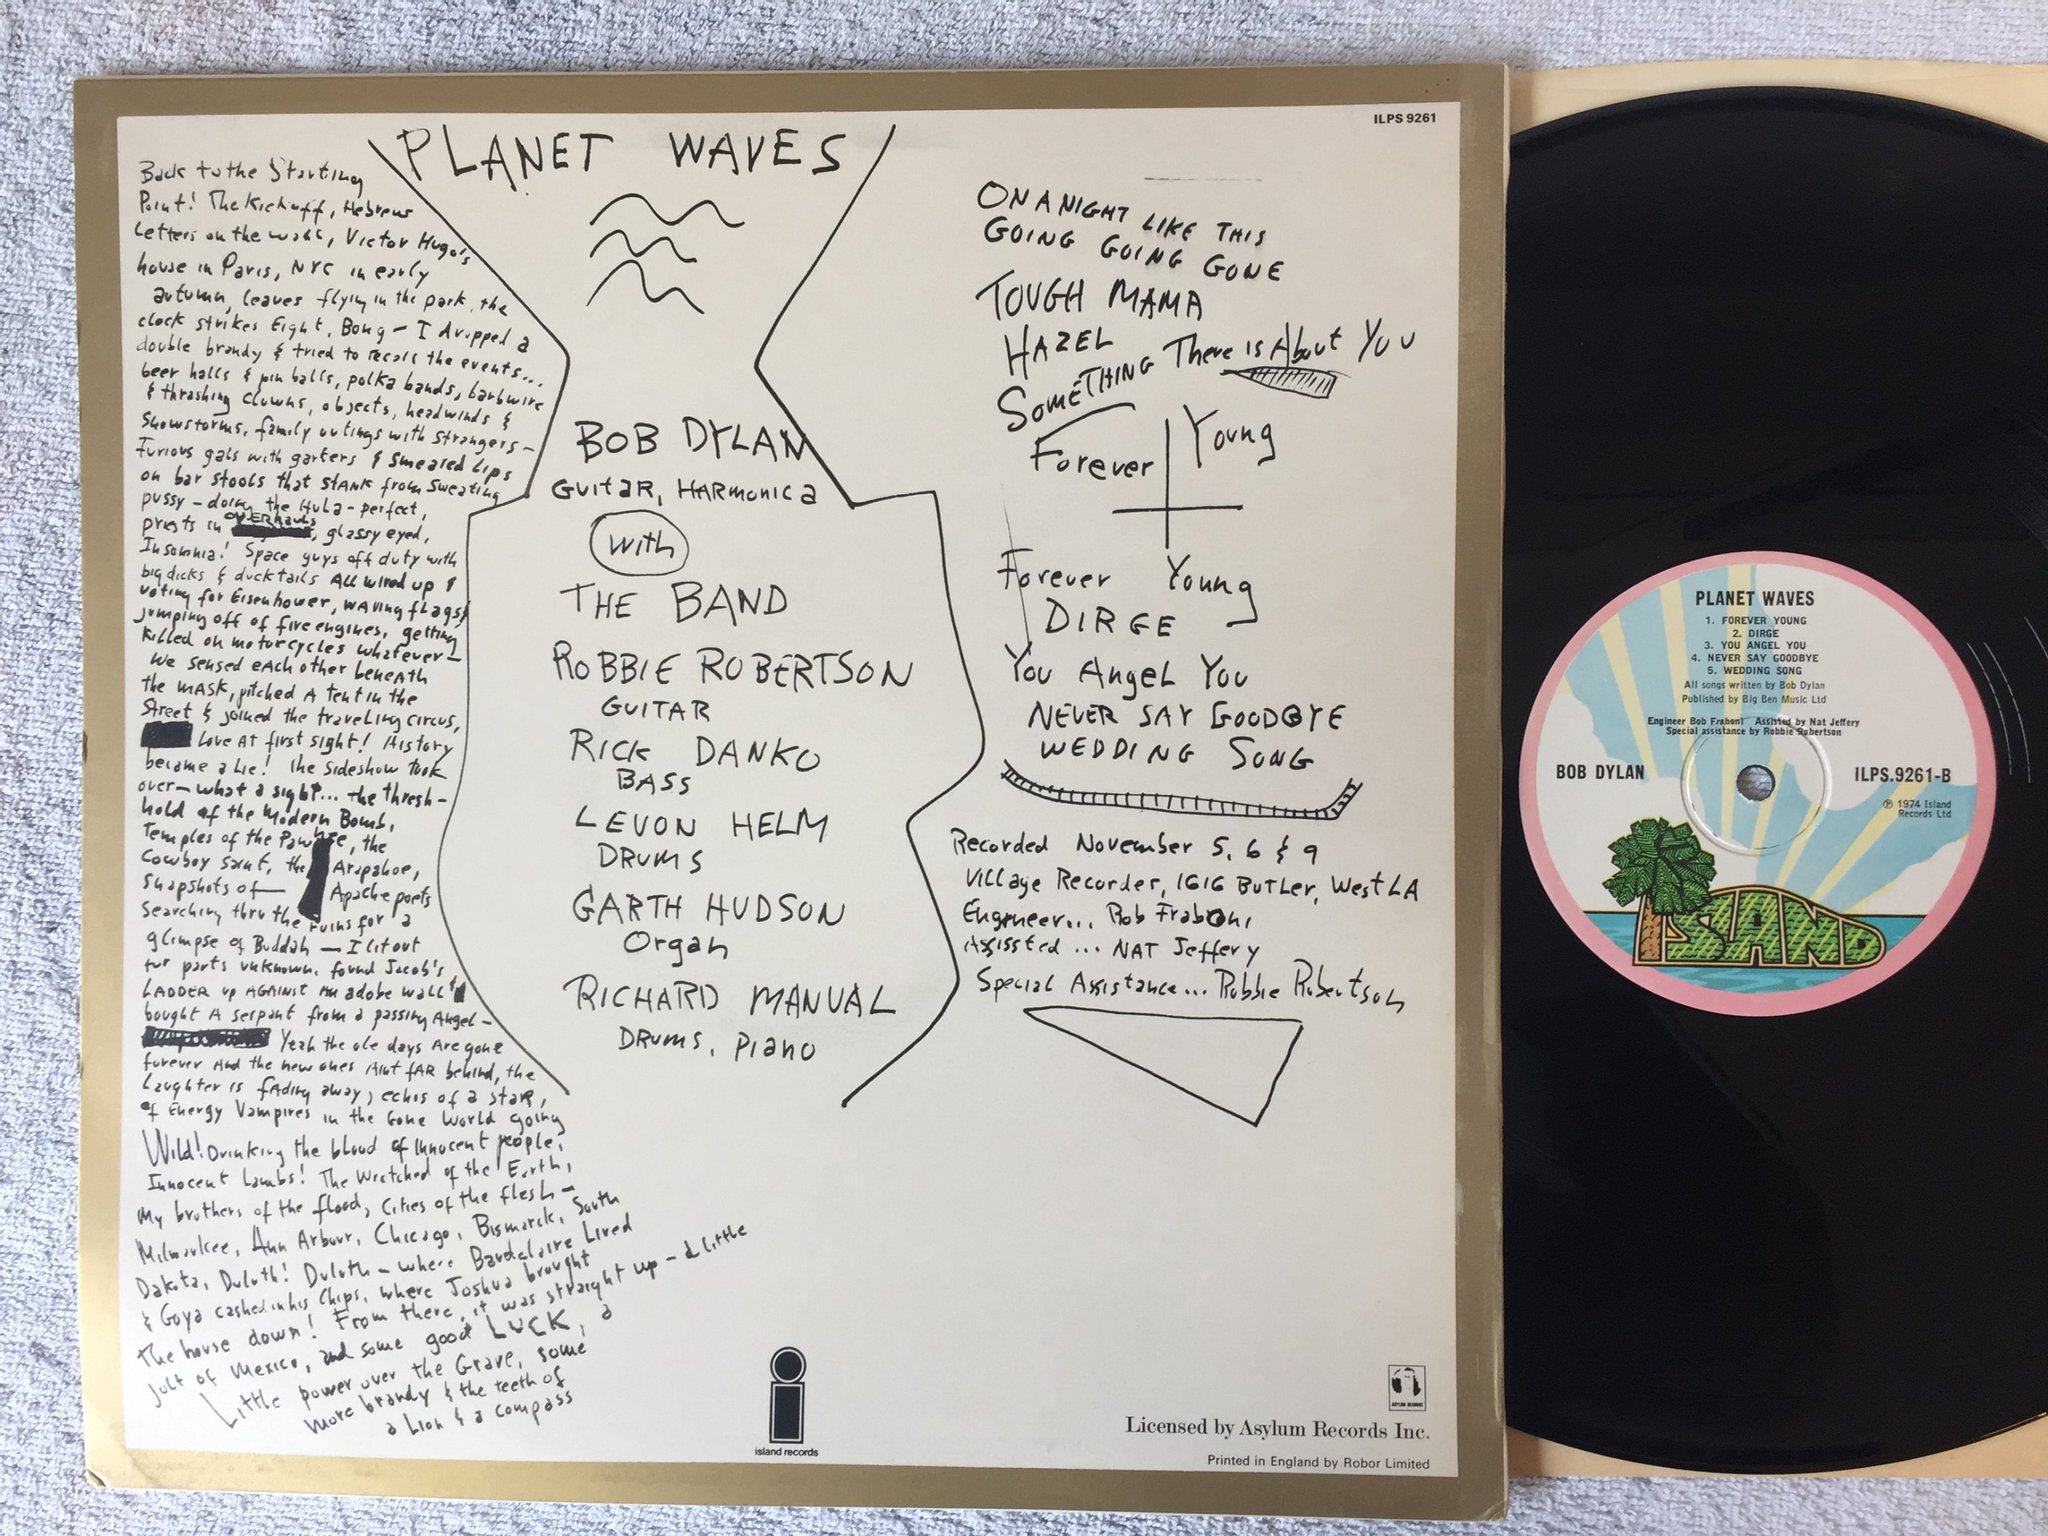 ILPS 9261
PLANET WAVES
Back to the Starting
Point! The Kickoff, Hebrew
Letters on the wall, Victor Hugo's
house in Paris, NYC in early
autumn, leaves flying in the park, the
clock strikes Eight, Bong – I dropped a
double brandy & tried to recall the events...
beer halls & pin balls, polka bands, barbwire
& thrashing clowns, objects, headwinds &
Snowstorms, family outings with strangers –
Furious gals with garters & smeared Lips
on bar stools that STANK from sweating
pussy – doing the Hula – perfect,
priests in OVERhauls, glassy eyed,
Insomnia! Space guys off duty with
big dicks & ducktails All wired up &
voting for Eisenhower, waving flags &
jumping off of fire engines, getting
killed on motorcycles whatever –
We sensed each other beneath
the MASK, pitched A tent in the
Street & joined the traveling circus,
Love AT first sight! History
became a Lie! The sideshow took
over – what a sight... the thresh-
hold of the Modern Bomb,
Temples of the Pawnee, the
Cowboy saint, the Arapahoe,
Snapshots of – Apache poets
searching thru the ruins for a
glimpse of Buddah – I lit out
for parts unknown, found Jacob's
LADDER up AGAINST an adobe wall &
bought A serpant from a passing Angel –
Yeah the ole days Are gone
forever And the new ones Aint fAR behind, the
Laughter is fAding away, echos of a star,
of Energy Vampires in the Gone World going
Wild! Drinking the blood of innocent people,
Innocent Lambs! The Wretched of the Earth,
My brothers of the flood, Cities of the flesh –
Milwaukee, Ann Arbour, Chicago, Bismarck, South
Dakota, Duluth! Duluth – where Baudelaire Lived
& Goya cashed in his Chips, where Joshua brought
the house down! From there, it was straight up – a little
jolt of Mexico, and some good LUCK, a
Little power over the Grave, some
more brandy & the teeth of
a Lion & a compass
BOB DYLAN
GUITAR, HARMONICA
with
THE BAND
ROBBIE ROBERTSON
GUITAR
RICK DANKO
BASS
LEVON HELM
DRUMS
GARTH HUDSON
Organ
RICHARD MANUAL
DRUMS, Piano
ON A NIGHT LIKE THIS
GOING GOING GONE
TOUGH MAMA
HAZEL
SOMETHING There is About You
Forever Young
Forever Young
DIRGE
You Angel You
NEVER SAY GOODBYE
WEDDING SONG
Recorded November 5, 6 & 9
Village Recorder, 1616 BUTLER, West LA
Engineer... Rob Fraboni
Assissted... NAT Jeffery
Special Assistance... Robbie Robertson
island records
ASYLUM RECORDS
Licensed by Asylum Records Inc.
Printed in England by Robor Limited
PLANET WAVES
1. FOREVER YOUNG
2. DIRGE
3. YOU ANGEL YOU
4. NEVER SAY GOODBYE
5. WEDDING SONG
All songs written by Bob Dylan
Published by Big Ben Music Ltd
Engineer Bob Fraboni Assisted by Nat Jeffery
Special assistance by Robbie Robertson
BOB DYLAN
ILPS.9261-B
℗ 1974 Island
Records Ltd
ISLAND